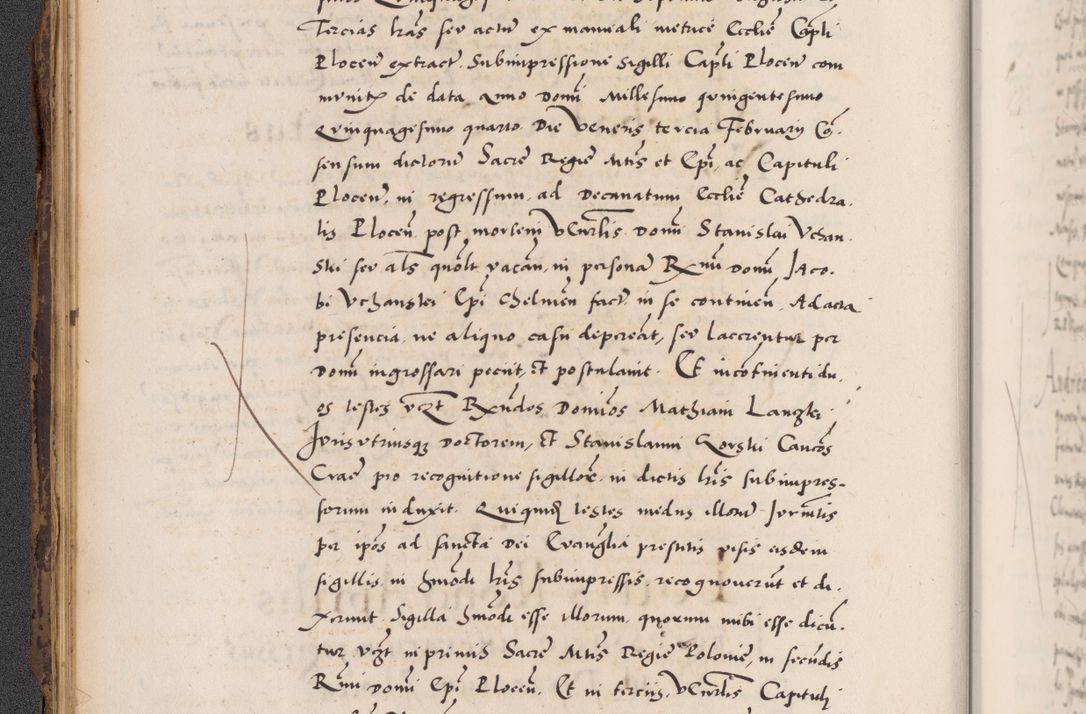 Tercias l̃ras seu actum ex manuali metrice Ecclie͂ Cap̃li
Plocen͂ extract͂. Subimpressione sigilli Cap̃li Plocen͂ com
munit͂ de data Anno Domi͂ Millesimo quingentesimo
Quinquagesimo quarto Die Veneris tercia February Co͂-
sensum dictoru͂ Sacre͂ Regie͂ M͂tis et Ep̃i, ac Capituli
Plocen͂, in regressum, ad Decanatum Ecclie͂ Cathedra-
lis Plocen͂ post mortem V͂en͂rlis Domi͂ Stanislai Vchan-
ski seu al͂s quo͂l͂t vacan͂, in persona͂ R͂mi Domi͂ Jaco-
bi Vchanskei Ep̃i Chelmen͂ fact͂ in se continen͂, Ad acta
presencia, ne aliquo casu depereat͂, seu lacerentur per
Domi͂ ingrossari peciit, et postulauit. Et incontinenti du-
os testes vcz͂t R͂x͂ndos Domi͂os Mathiam Lanzkei
Juris vtriusq͂ Doctorem, et Stanislaum Gorski Canco͂s
Crac͂ pro recognitione sigillor͂, in dictis l͂ris subimpres-
sorum induxit. Quiquid͂ testes medns illoru͂ Jurm͂tis
per ip͂os ad sancta Dei Euan͂glia presntis visis eisdem
sigillis, in h͂mo͂di l͂ris subimpressis, recognoueru͂t et di-
xerunt. Sigilla h͂mo͂di esse illorum, quorum mihi esse dicu͂-
tur vcz͂t in primis Sacre͂ M͂tis Regie͂ Polonie͂, in secu͂dis
R͂mi Domi͂ Ep̃i Plocen͂. Et in terciis, V͂en͂rlis Capituli